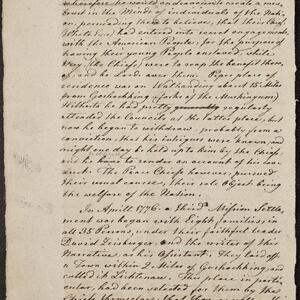 wherefore he would endeavour to create a mis-
trust in the Minds of individuals of the Na-
tion, persuading them to believe, that their Chief
White Eyes had entered into secret engagements
with the American People, for the purpose of
having their young People enslaved, while
they (the Chiefs) were to reap the benefit there-
of, and be Lords over them. Pipes place of
residence was on Walhanding about 15 Miles
from Goschachking (forks of the Muskingum)
Hitherto he had pretty regularly
attended the Councils at the latter place, but
now he began to withdraw, probably from a
conviction, that his intrigues were known, and
might one day be held up to him by the Chiefs
and he have to render an account of his con-
duct. The Peace Chiefs however, pursued
their usual course, their sole Object being
the welfare of the Nation.
In April 1776, a third Mission Settle-
ment was began with Eight families, in
all 35 Persons, under their faithful leader
David Zeisberger, and the writer of this
Narrative, as his Assistant. They laid off
a Town within 2 Miles of Goschachking, and
called it Lichtenau. This place in parti-
cular, had been selected for them by the